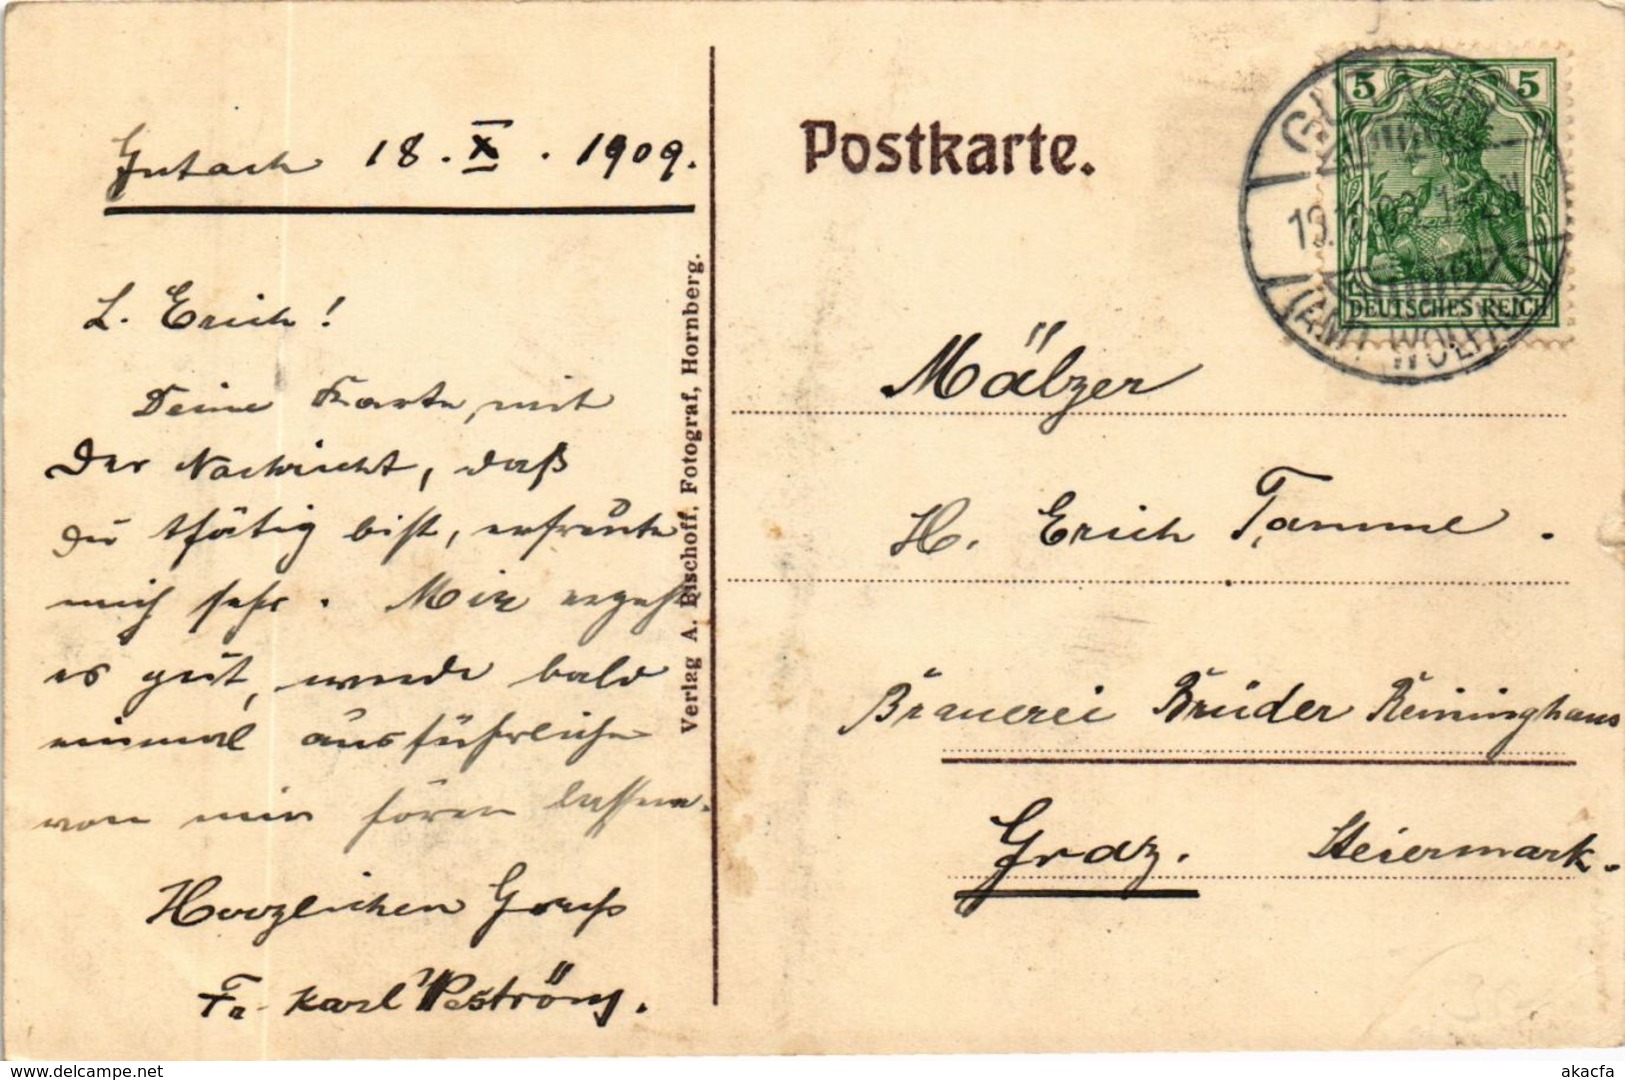 Gutach 18. X. 1909.
L. Erich!
Deine Karte, mit
der Nachricht, daß
du thätig bist, erfreute
mich sehr. Mir ergeht
es gut, werde bald
einmal ausführlicher
von mir hören lassen.
Herzlichen Gruß
Fr. Karl
Verlag A. Bischoff, Fotograf, Hornberg.
Postkarte.
5 5
DEUTSCHES REICH
GUTACH
(AMT WOLFA
Mälzer
H. Erich Tamme.
Brauerei Brüder Reininghaus
Graz. Steiermark.
akacfa